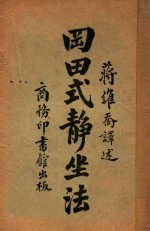 蔣維喬譯述
岡田式靜坐法
商務印書館出板